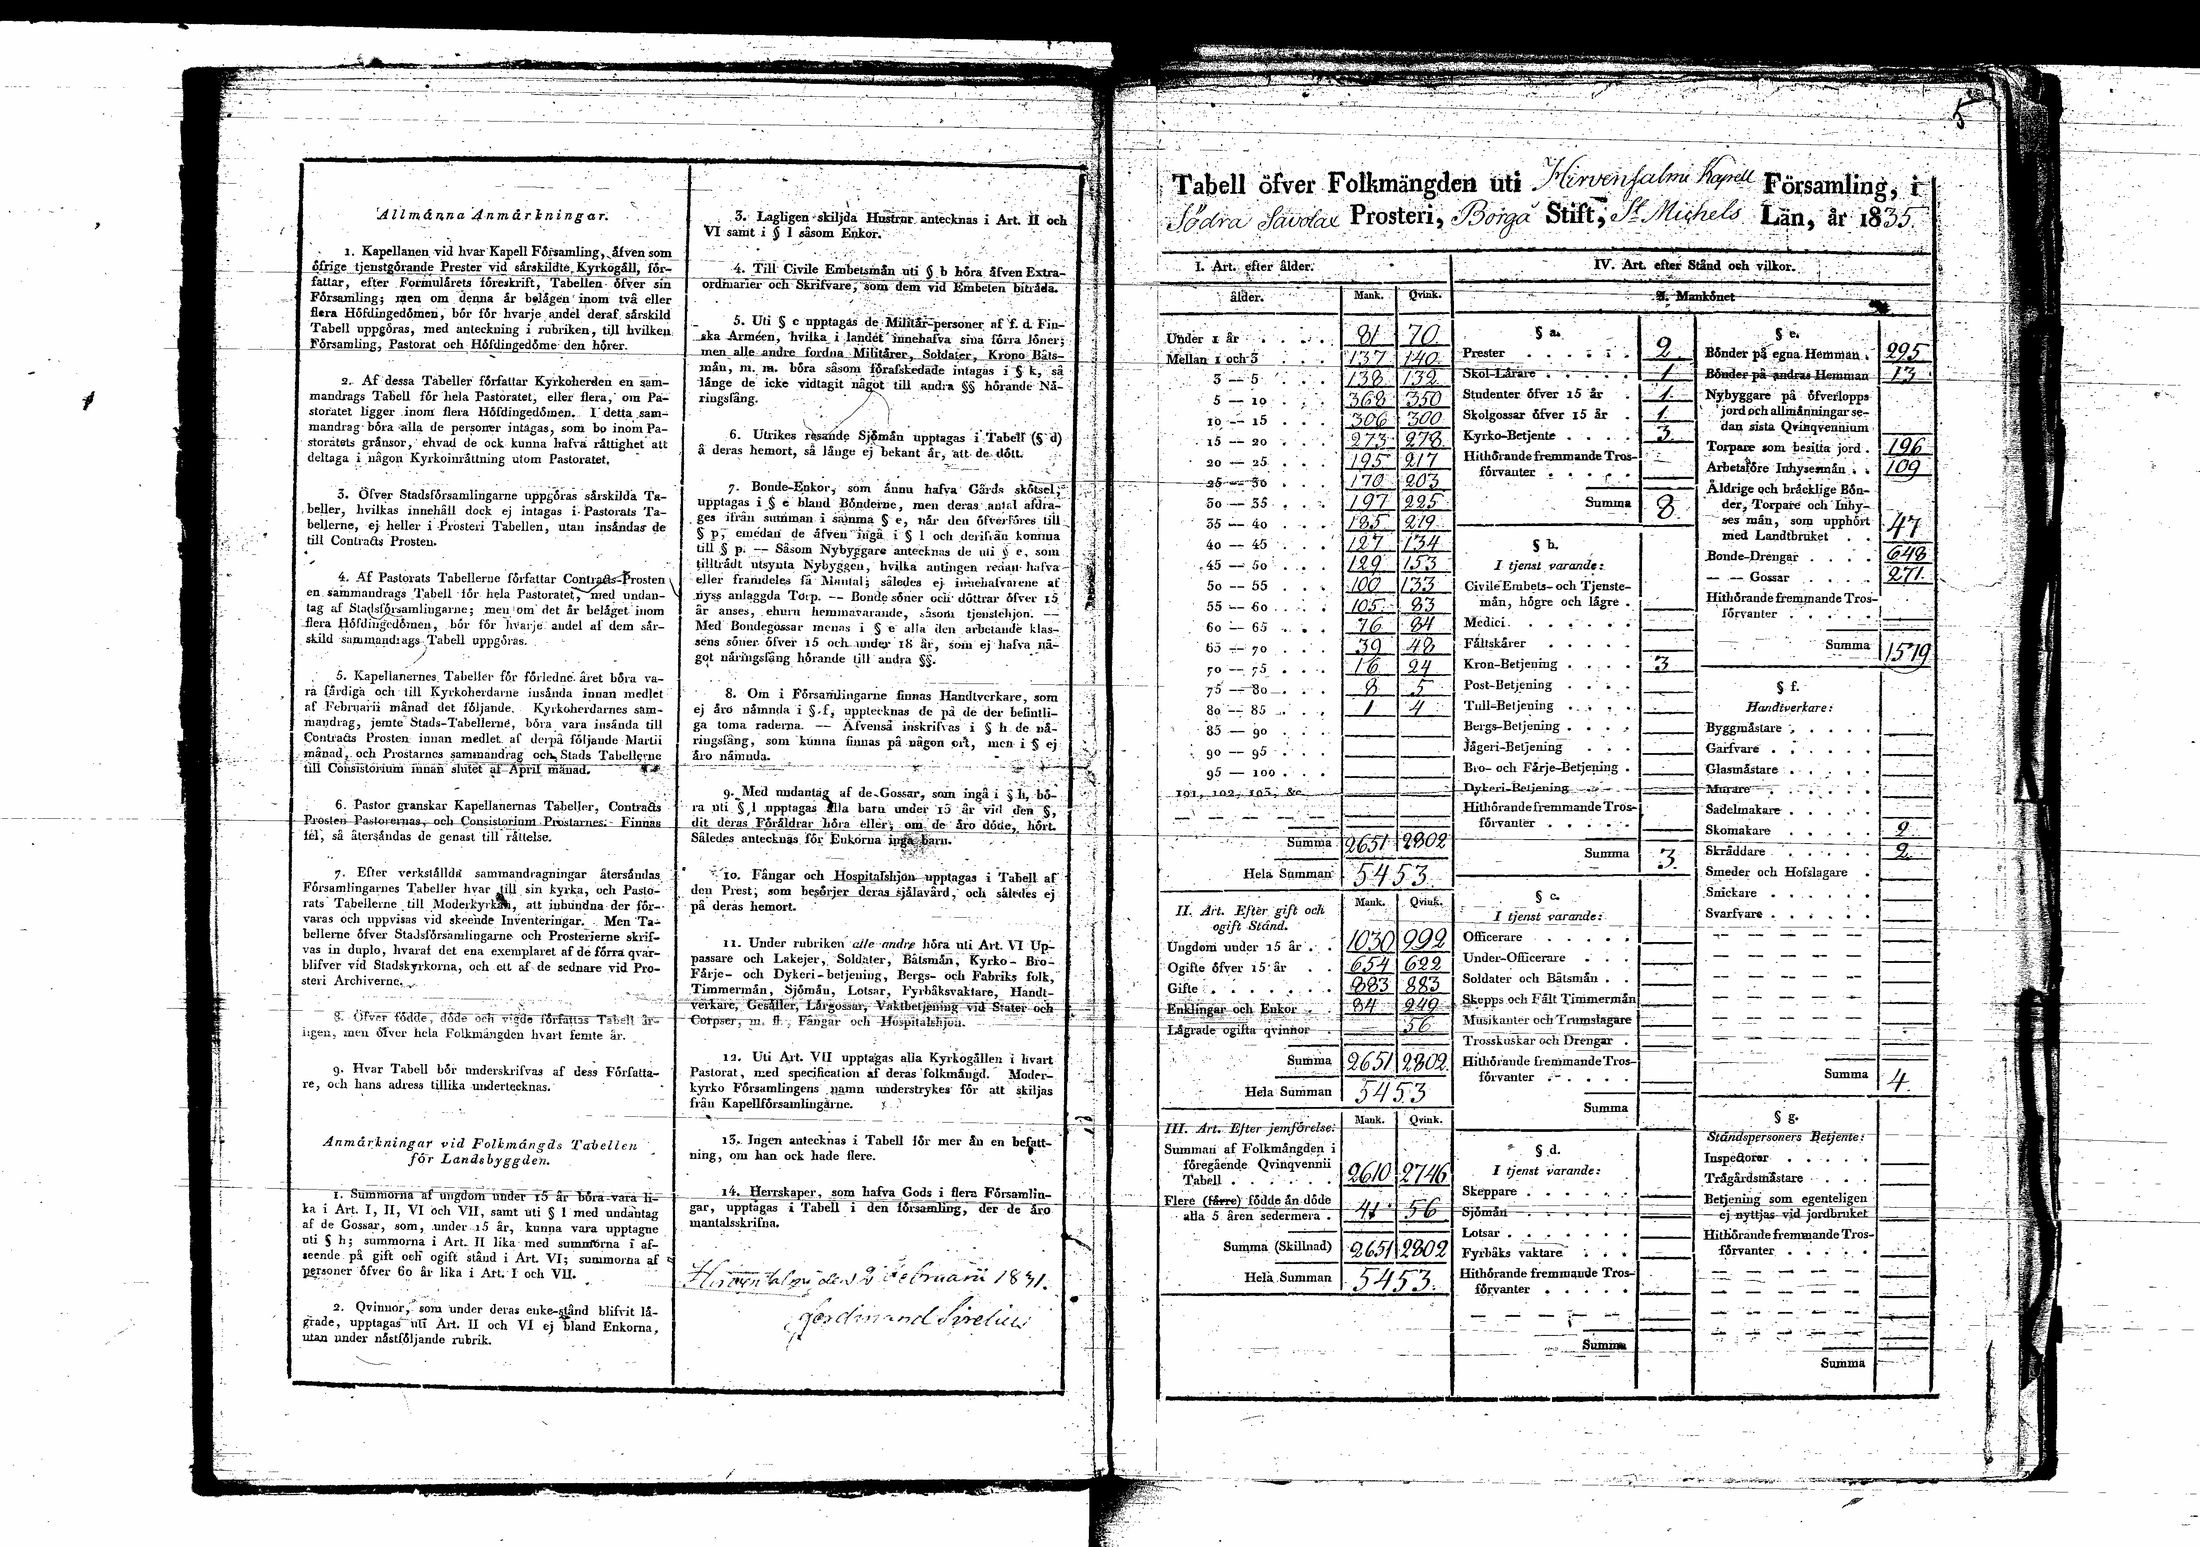 Allmänna Anmärkningar.
1. Kapellanen vid hvar Kapell Församling, åfven som
öfrige tjenstgörande Prester vid särskildte Kyrkogäll, för-
fattar, efter Formulårets föreskrift, Tabellen öfver sin
Församling; men om denna år belågen inom två eller
flera Höfdingedömen, bör för hvarje andel deraf sårskild
Tabell uppgöras, med anteckning i rubriken, till hvilken
Församling, Pastorat och Höfdingedöme den hörer.
2. Af dessa Tabeller författar Kyrkoherden en sam-
mandrags Tabell för hela Pastoratet, eller flera, om Pa-
storatet ligger inom flera Höfdingedömen. I detta sam-
mandrag böra alla de personer intagas, som bo inom Pa-
storatets grånsor, ehvad de ock kunna hafva råttighet att
deltaga i någon Kyrkoinråttning utom Pastoratet.
3. Öfver Stadsförsamlingarne uppgöras sårskilda Ta-
beller, hvilkas innehåll dock ej intagas i Pastorats Ta-
bellerne, ej heller i Prosteri Tabellen, utan insåndas de
till Contracts Prosten.
4. Af Pastorats Tabellerne författar Contracts-Prosten
en sammandrags Tabell för hela Pastoratet, med undan-
tag af Stadsförsamlingarne; men om det år belåget inom
flera Höfdingedömen, bör för hvarje andel af dem sår-
skild sammandrags Tabell uppgöras.
5. Kapellanernes Tabeller för förledne året böra va-
ra fårdiga och till Kyrkoherdarne insånda innan medlet
af Februarii månad det följande. Kyrkoherdarnes sam-
mandrag, jemte Stads-Tabellerne, böra vara insånda till
Contracts Prosten innan medlet af derpå följande Martii
månad, och Prostarnes sammandrag och Stads Tabellerne
till Consistorium innan slutet af April månad.
6. Pastor granskar Kapellanernas Tabeller, Contracts
Prosten Pastorernas, och Consistorium Prostarnes. Finnas
fel, så återsåndas de genast till råttelse.
7. Efter verkstållda sammandragningar återsåndas
Församlingarnes Tabeller hvar till sin kyrka, och Pasto-
rats Tabellerne till Moderkyrkan, att inbundna der för-
varas och uppvisas vid skeende Inventeringar. Men Ta-
bellerne öfver Stadsförsamlingarne och Prosterierne skrif-
vas in duplo, hvaraf det ena exemplaret af de förra qvar-
blifver vid Stadskyrkorna, och ett af de sednare vid Pro-
steri Archiverne.
8. Öfver födde, döde och vigde författas Tabell år-
ligen, men öfver hela Folkmängden hvart femte år.
9. Hvar Tabell bör underskrifvas af dess Författa-
re, och hans adress tillika undertecknas.
Anmärkningar vid Folkmängds Tabellen
för Landsbyggden.
1. Summorna af ungdom under 15 år böra vara li-
ka i Art. I, II, VI och VII, samt uti § l med undantag
af de Gossar, som, under 15 år, kunna vara upptagne
uti § h; summorna i Art. II lika med summorna i af-
seende på gift och ogift stånd i Art. VI; summorna af
personer öfver 60 år lika i Art. I och VII.
2. Qvinnor, som under deras enke-stånd blifvit lå-
grade, upptagas uti Art. II och VI ej bland Enkorna,
utan under nåstföljande rubrik.
3. Lagligen skiljda Hustrur antecknas i Art. II och
VI samt i § l såsom Enkor.
4. Till Civile Embetsmån uti § b höra åfven Extra-
ordinarier och Skrifvare, som dem vid Embeten bitråda.
5. Uti § c upptagas de Militår-personer af f. d. Fin-
ska Arméen, hvilka i landet innehafva sina förra löner;
men alle andre fordna Militårer, Soldater, Krono Båts-
mån, m. m. böra såsom förafskedade intagas i § k, så
långe de icke vidtagit något till andra §§ hörande Nå-
ringsfång.
6. Utrikes resande Sjömån upptagas i Tabell (§ d)
å deras hemort, så långe ej bekant år, att de dött.
7. Bonde-Enkor, som ånnu hafva Gårds skötsel,
upptagas i § e bland Bönderne, men deras antal afdra-
ges ifrån summan i samma § e, når den öfverföres till
§ p, emedan de åfven ingå i § l och derifrån komma
till § p. — Såsom Nybyggare antecknas de uti § e, som
tilltrådt utsynta Nybyggen, hvilka antingen redan hafva
eller framdeles få Mantal; således ej innehafvarene af
nyss anlaggda Torp. — Bonde söner och döttrar öfver 15
år anses, ehuru hemmavarande, såsom tjenstehjon. —
Med Bondegossar menas i § e alla den arbetande klas-
sens söner öfver 15 och under 18 år, som ej hafva nå-
got näringsfång hörande till andra §§.
8. Om i Församlingarne finnas Handtverkare, som
ej åro nåmnda i § f, upptecknas de på de der befintli-
ga toma raderna. — Åfvenså inskrifvas i § h de nå-
ringsfång, som kunna finnas på någon ort, men i § ej
åro nåmnda.
9. Med undantag af de Gossar, som ingå i § h, bö-
ra uti § l upptagas alla barn under 15 år vid den §,
dit deras Föråldrar höra eller, om de åro döde, hört.
Således antecknas för Enkorna inga barn.
10. Fångar och Hospitalshjon upptagas i Tabell af
den Prest, som besörjer deras sjålavård, och således ej
på deras hemort.
11. Under rubriken alle andre höra uti Art. VI Up-
passare och Lakejer, Soldater, Båtsmån, Kyrko- Bro-
Fårje- och Dykeri-betjening, Bergs- och Fabriks folk,
Timmermån, Sjömån, Lotsar, Fyrbåksvaktare, Handt-
verkare, Gesåller, Lårgossar, Vaktbetjening vid Stater och
Corpser, m. fl., Fångar och Hospitalshjon.
12. Uti Art. VII upptagas alla Kyrkogållen i hvart
Pastorat, med specification af deras folkmångd. Moder-
kyrko Församlingens namn understrykes för att skiljas
från Kapellförsamlingarne.
13. Ingen antecknas i Tabell för mer ån en befatt-
ning, om han ock hade flere.
14. Herrskaper, som hafva Gods i flera Församlin-
gar, upptagas i Tabell i den församling, der de åro
mantalsskrifna.
Februarii 1831.
Ferdinand Sirelius
5
Tabell öfver Folkmängden uti Hirvensalmi Kapell Församling, i
Södra Savolax Prosteri, Borgå Stift, St Michels Län, år 1835.
I. Art. efter ålder.
ålder. Mank. Qvink.
Under 1 år 81 70
Mellan 1 och 3 137 140
3 — 5 138 132
5 — 10 368 350
10 — 15 306 300
15 — 20 273 278
20 — 25 195 217
25 — 30 170 203
30 — 35 197 225
35 — 40 185 219
40 — 45 127 134
45 — 50 129 153
50 — 55 100 133
55 — 60 105 83
60 — 65 76 84
65 — 70 39 48
70 — 75 16 24
75 — 80 8 5
80 — 85 1 4
85 — 90
90 — 95
95 — 100
101, 102, 103, &c.
Summa 2651 2802
Hela Summan 5453
II. Art. Efter gift och
ogift Stånd. Mank. Qvink.
Ungdom under 15 år 1030 992
Ogifte öfver 15 år 654 622
Gifte 883 883
Enklingar och Enkor 84 249
Lågrade ogifta qvinnor 56
Summa 2651 2802
Hela Summan 5453
III. Art. Efter jemförelse. Mank. Qvink.
Summan af Folkmångden i
föregående Qvinqvennii
Tabell 2610 2746
Flere (fårre) födde ån döde
alla 5 åren sedermera 41 56
Summa (Skillnad) 2651 2802
Hela Summan 5453.
IV. Art. efter Stånd och vilkor.
Mankönet
§ a.
Prester 2
Skol-Lårare 1
Studenter öfver 15 år 1
Skolgossar öfver 15 år 1
Kyrko-Betjente 3
Hithörande fremmande Tros-
förvanter
Summa 8
§ b.
I tjenst varande:
Civile Embets- och Tjenste-
mån, högre och lågre
Medici
Fåltskårer
Kron-Betjening 3
Post-Betjening
Tull-Betjening
Bergs-Betjening
Jågeri-Betjening
Bro- och Fårje-Betjening
Dykeri-Betjening
Hithörande fremmande Tros-
förvanter
Summa 3
§ c.
I tjenst varande:
Officerare
Under-Officerare
Soldater och Båtsmån
Skepps och Fålt Timmermån
Musikanter och Trumslagare
Trosskuskar och Drengar
Hithörande fremmande Tros-
förvanter
Summa
§ d.
I tjenst varande:
Skeppare
Sjömån
Lotsar
Fyrbåks vaktare
Hithörande fremmande Tros-
förvanter
Summa
§ e.
Bönder på egna Hemman 295
Bönder på andras Hemman 13
Nybyggare på öfverlopps
jord och allmånningar se-
dan sista Qvinqvennium
Torpare som besitta jord 196
Arbetsföre Inhysesmån 109
Åldrige och bråcklige Bön-
der, Torpare och Inhy-
ses mån, som upphört
med Landtbruket 47
Bonde-Drengar 648
— — Gossar 271
Hithörande fremmande Tros-
förvanter
Summa 1579
§ f.
Handtverkare:
Byggmåstare
Garfvare
Glasmåstare
Murare
Sadelmakare
Skomakare 2
Skråddare 2
Smeder och Hofslagare
Snickare
Svarfvare
Summa 4
§ g.
Ståndspersoners Betjente:
Inspectorer
Trågårdsmåstare
Betjening som egenteligen
ej nyttjas vid jordbruket
Hithörande fremmande Tros-
förvanter
Summa